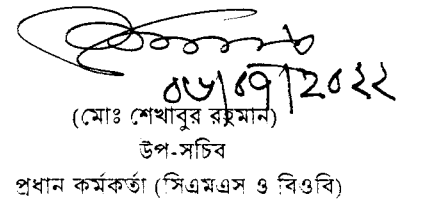 ০৬/০৭/২০২২
(মোঃ শেখাবুর রহমান)
উপ-সচিব
প্রধান কর্মকর্তা (সিএমএস ও বিওবি)